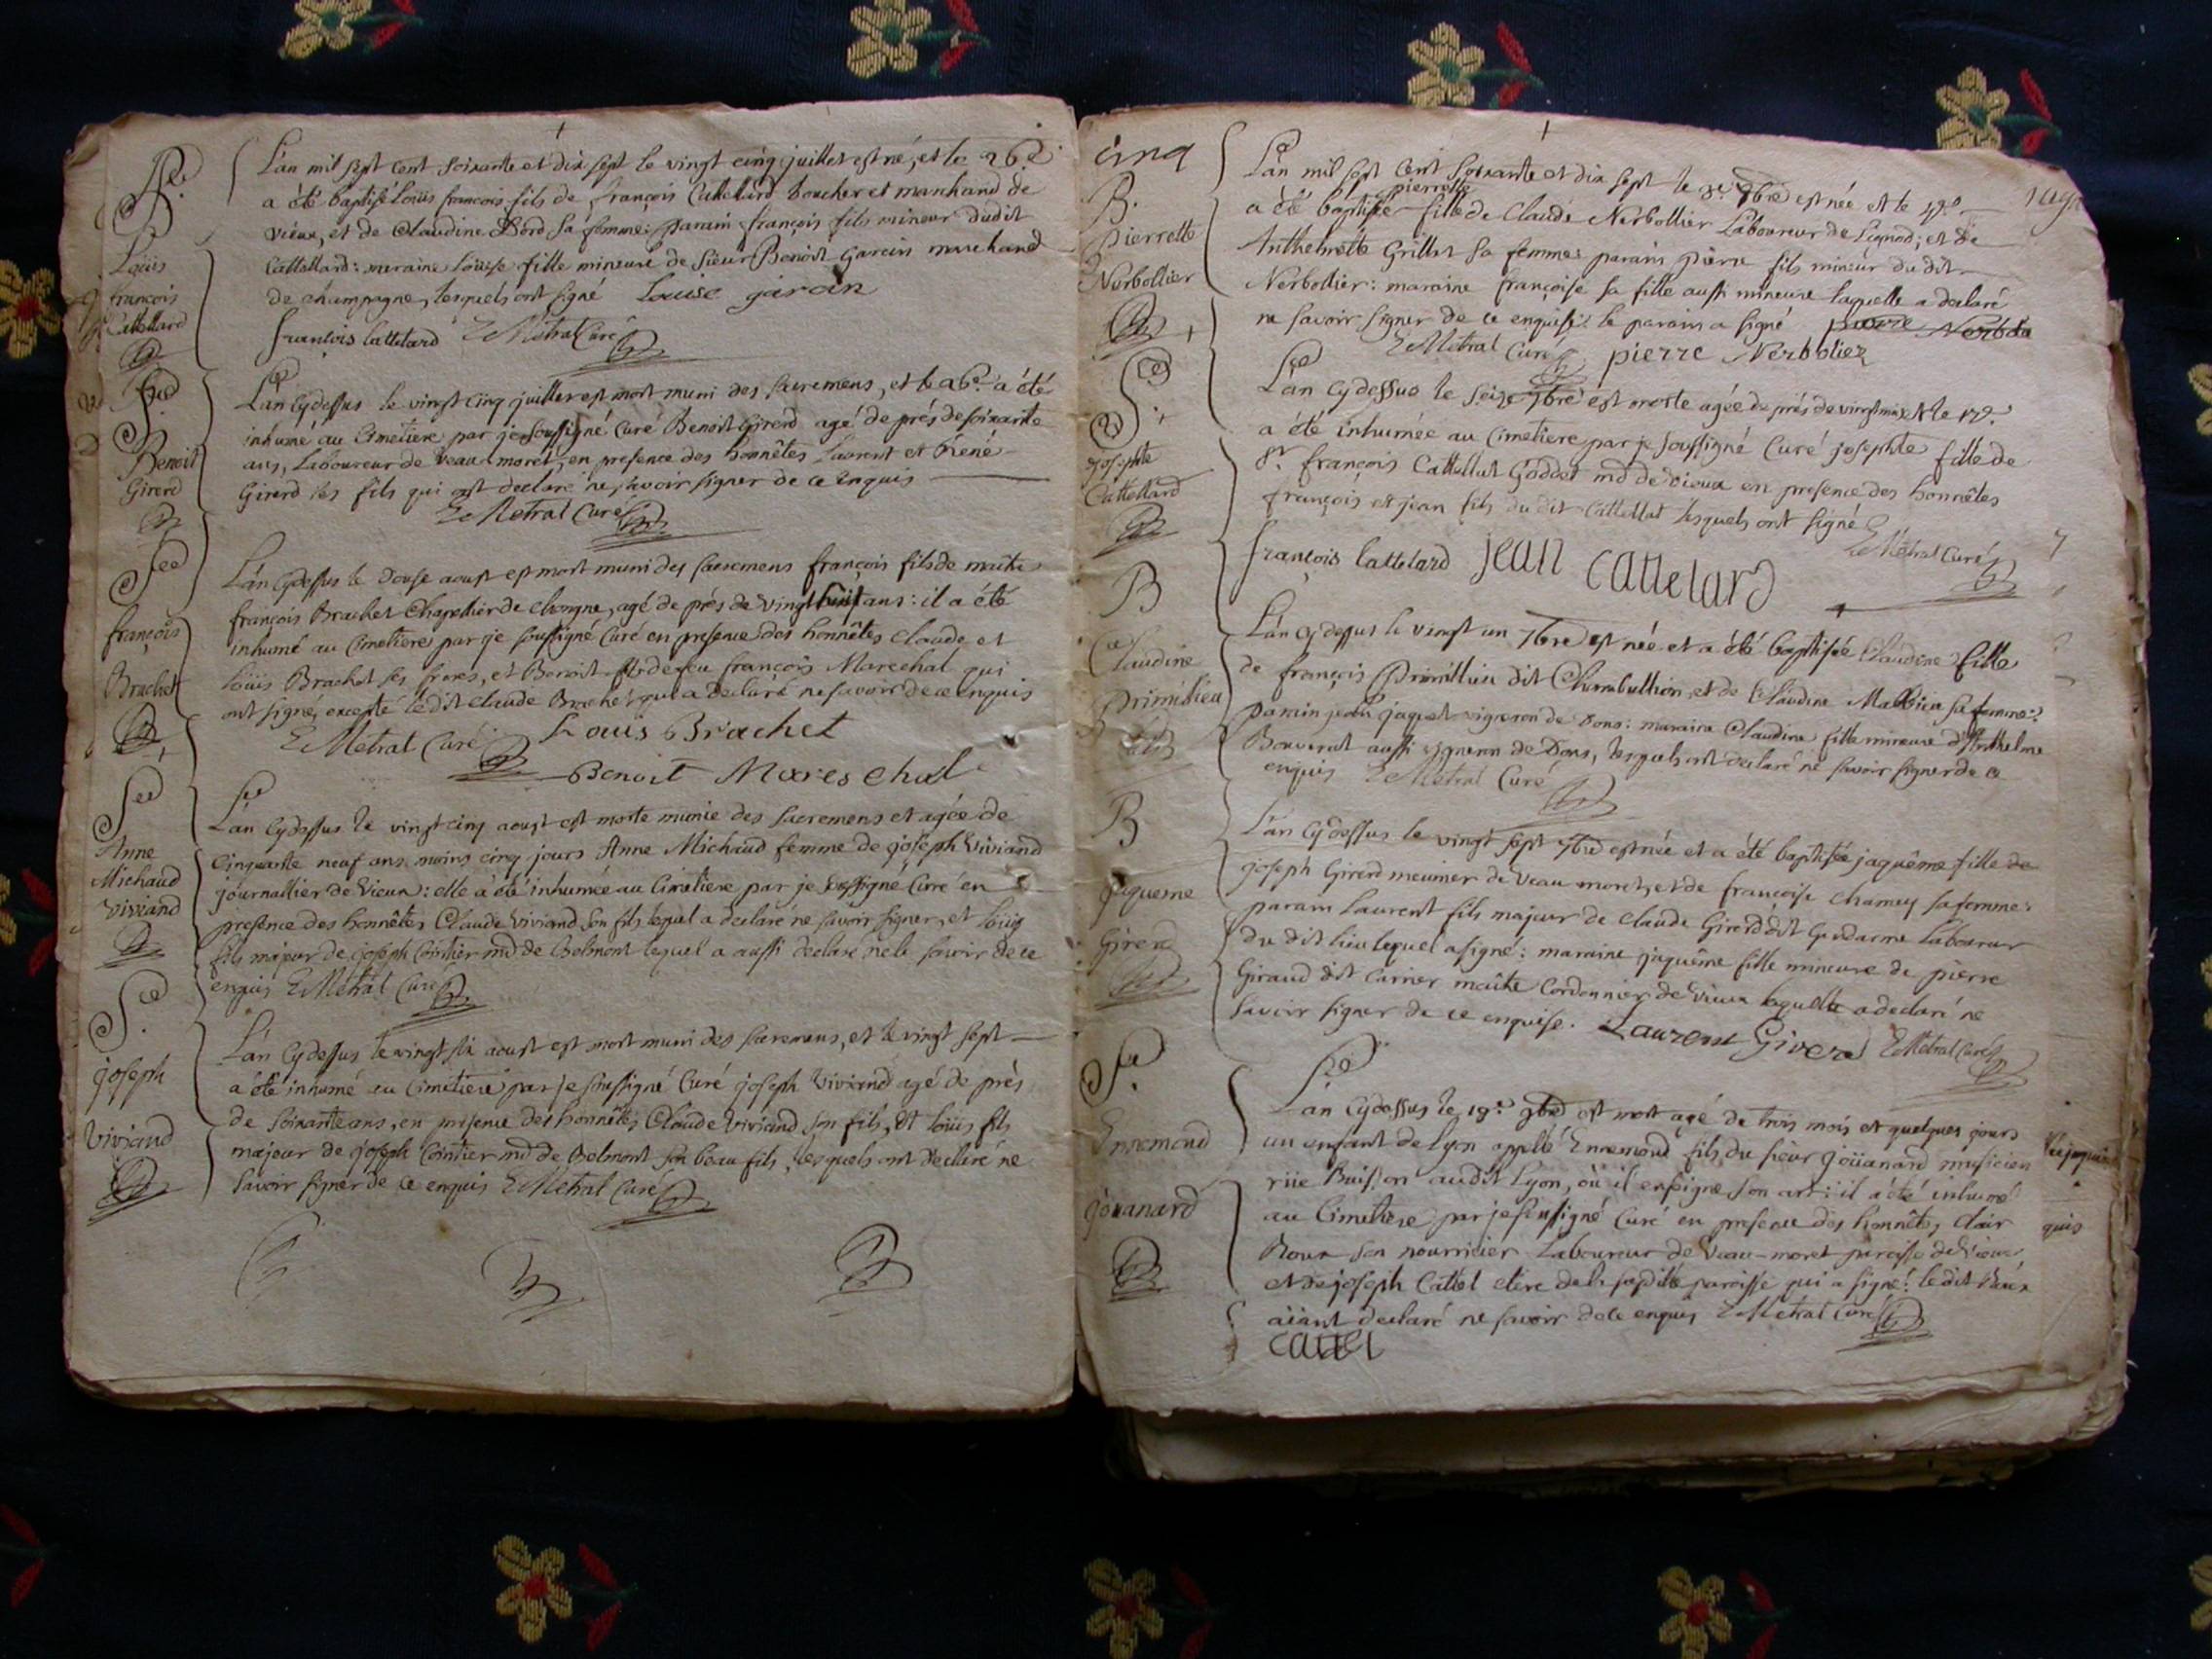 Bé.
Loüis
françois
Cattellard
L'an mil sept cent soixante et dix sept le vingt cinq juillet est né, et le 26e.
a été baptisé Loüis françois fils de françois Cattellard boucher et marchand de
vieux, et de Claudine Bord sa femme: parain françois fils mineur dudit
Cattellard: maraine Loüise fille mineure de sieur Benoit Garcin marchand
de champagne, lesquels ont signé Louise garcin
françois Cattelard E Métral Curé
Sed
Benoit
Girerd
L'an cy dessus le vingt cinq juillet est mort muni des sacremens, et le 26e. a été
inhumé au Cimetiere par je soussigné Curé Benoit Girerd agé de prés de soixante
ans, Laboureur de Veau-moret, en presence des honnêtes Laurent et René
Girerd ses fils qui ont declaré ne savoir signer de ce enquis
E Metral Curé
françois
Brachet
L'an cy dessus le douse aoust est mort muni des sacremens françois fils de maître
françois Brachet Chapellier de chongne, agé de prés de vingt huit ans: il a été
inhumé au Cimetiere par je soussigné Curé en presence des honnêtes Claude et
Loüis Brachet ses freres, et Benoit fils de feu françois Marechal qui
ont signé, excepté le dit Claude Brachet qui a declaré ne savoir de ce enquis
E Métral Curé Louis Brachet
Benoit Mareschal
Anne
Michaud
Viviand
L'an cy dessus le vingt cinq aoust est morte munie des sacremens et agée de
Cinquante neuf ans moins cinq jours Anne Michaud femme de joseph Viviand
journallier de Vieux: elle a été inhumée au Cimetiere par je soussigné Curé en
presence des honnêtes Claude Viviand son fils lequel a declaré ne savoir signer, et Loüis
fils majeur de joseph Cointier md de Belmont lequel a aussi declaré ne le savoir de ce
enquis E Métral Curé
joseph
Viviand
L'an cy dessus le vingt six aoust est mort muni des sacremens, et le vingt sept
a été inhumé au Cimetiere par je soussigné Curé joseph Viviand agé de prés
de soixante ans, en presence des honnêtes Claude Viviand son fils, et Loüis fils
majeur de joseph Cointier md de Belmont son beau fils, lesquels ont declaré ne
savoir signer de ce enquis E Métral Curé
cinq
B.
Pierrette
Nerbollier
L'an mil sept cent soixante et dix sept le 7bre est née et le
pierrette
a été baptisée fille de Claude Nerbollier Laboureur de Lignod; et de
Anthelmette Grillet sa femme: parain pierre fils mineur du dit
Nerbollier: maraine françoise sa fille aussi mineure laquelle a declaré
ne savoir signer de ce enquise: le parain a signé
E Métral Curé pierre Nerbolier
josephte
Cattellard
L'an cy dessus le seize 7bre est morte agée de prés de vingt et le 17e.
a été inhumée au Cimetiere par je soussigné Curé josephte fille de
Sr. françois Cattellat Goddet md de vieux en presence des honnêtes
françois et jean fils du dit Cattellat lesquels ont signé
françois Cattelard jean cattelard E Métral Curé
B
Claudine
Primillieu
L'an cy dessus le vingt un 7bre est née et a été baptisée Claudine fille
de françois Primillieu dit Chambullion, et de Claudine Mathieu sa femme:
parain jaquet vigneron de Dons: maraine Claudine fille mineure d'Anthelme
Bouverat aussi vigneron de Dons, lesquels ont declaré ne savoir signer de ce
enquis E Métral Curé
B
jaqueme
Girerd
L'an cy dessus le vingt sept 7bre est née et a été baptisée jaquême fille de
joseph Girerd meunier de Veau moret, et de françoise Chamey sa femme:
parain Laurent fils majeur de Claude Girerd dit Gendarme Laboureur
du dit lieu lequel a signé: maraine jaquême fille mineure de pierre
Giraud dit Carrier maître Cordonnier de Vieux laquelle a declaré ne
savoir signer de ce enquise. Laurent Girerd E Métral Curé
Ennemond
joüanard
L'an cy dessus le 18e. 9bre est mort agé de trois mois et quelques jours
un enfant de Lyon appellé Ennemond fils du sieur joüanard musicien
rüe Buisson audit Lyon, où il enseigne son art: il a été inhumé
au Cimetiere par je soussigné Curé en presence des honnêtes Clair
Roux son nourricier Laboureur de Veau-moret paroisse de vieux
et de joseph Cattel clerc de la susditte paroisse qui a signé: le dit Roux
aiant declaré ne savoir de ce enquis E Métral Curé
cattel